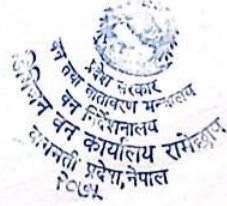 प्रदेश सरकार
वन तथा वातावरण मन्त्रालय
वन निर्देशनालय
डिभिजन वन कार्यालय रामेछाप
बागमती प्रदेश, नेपाल
२०७५